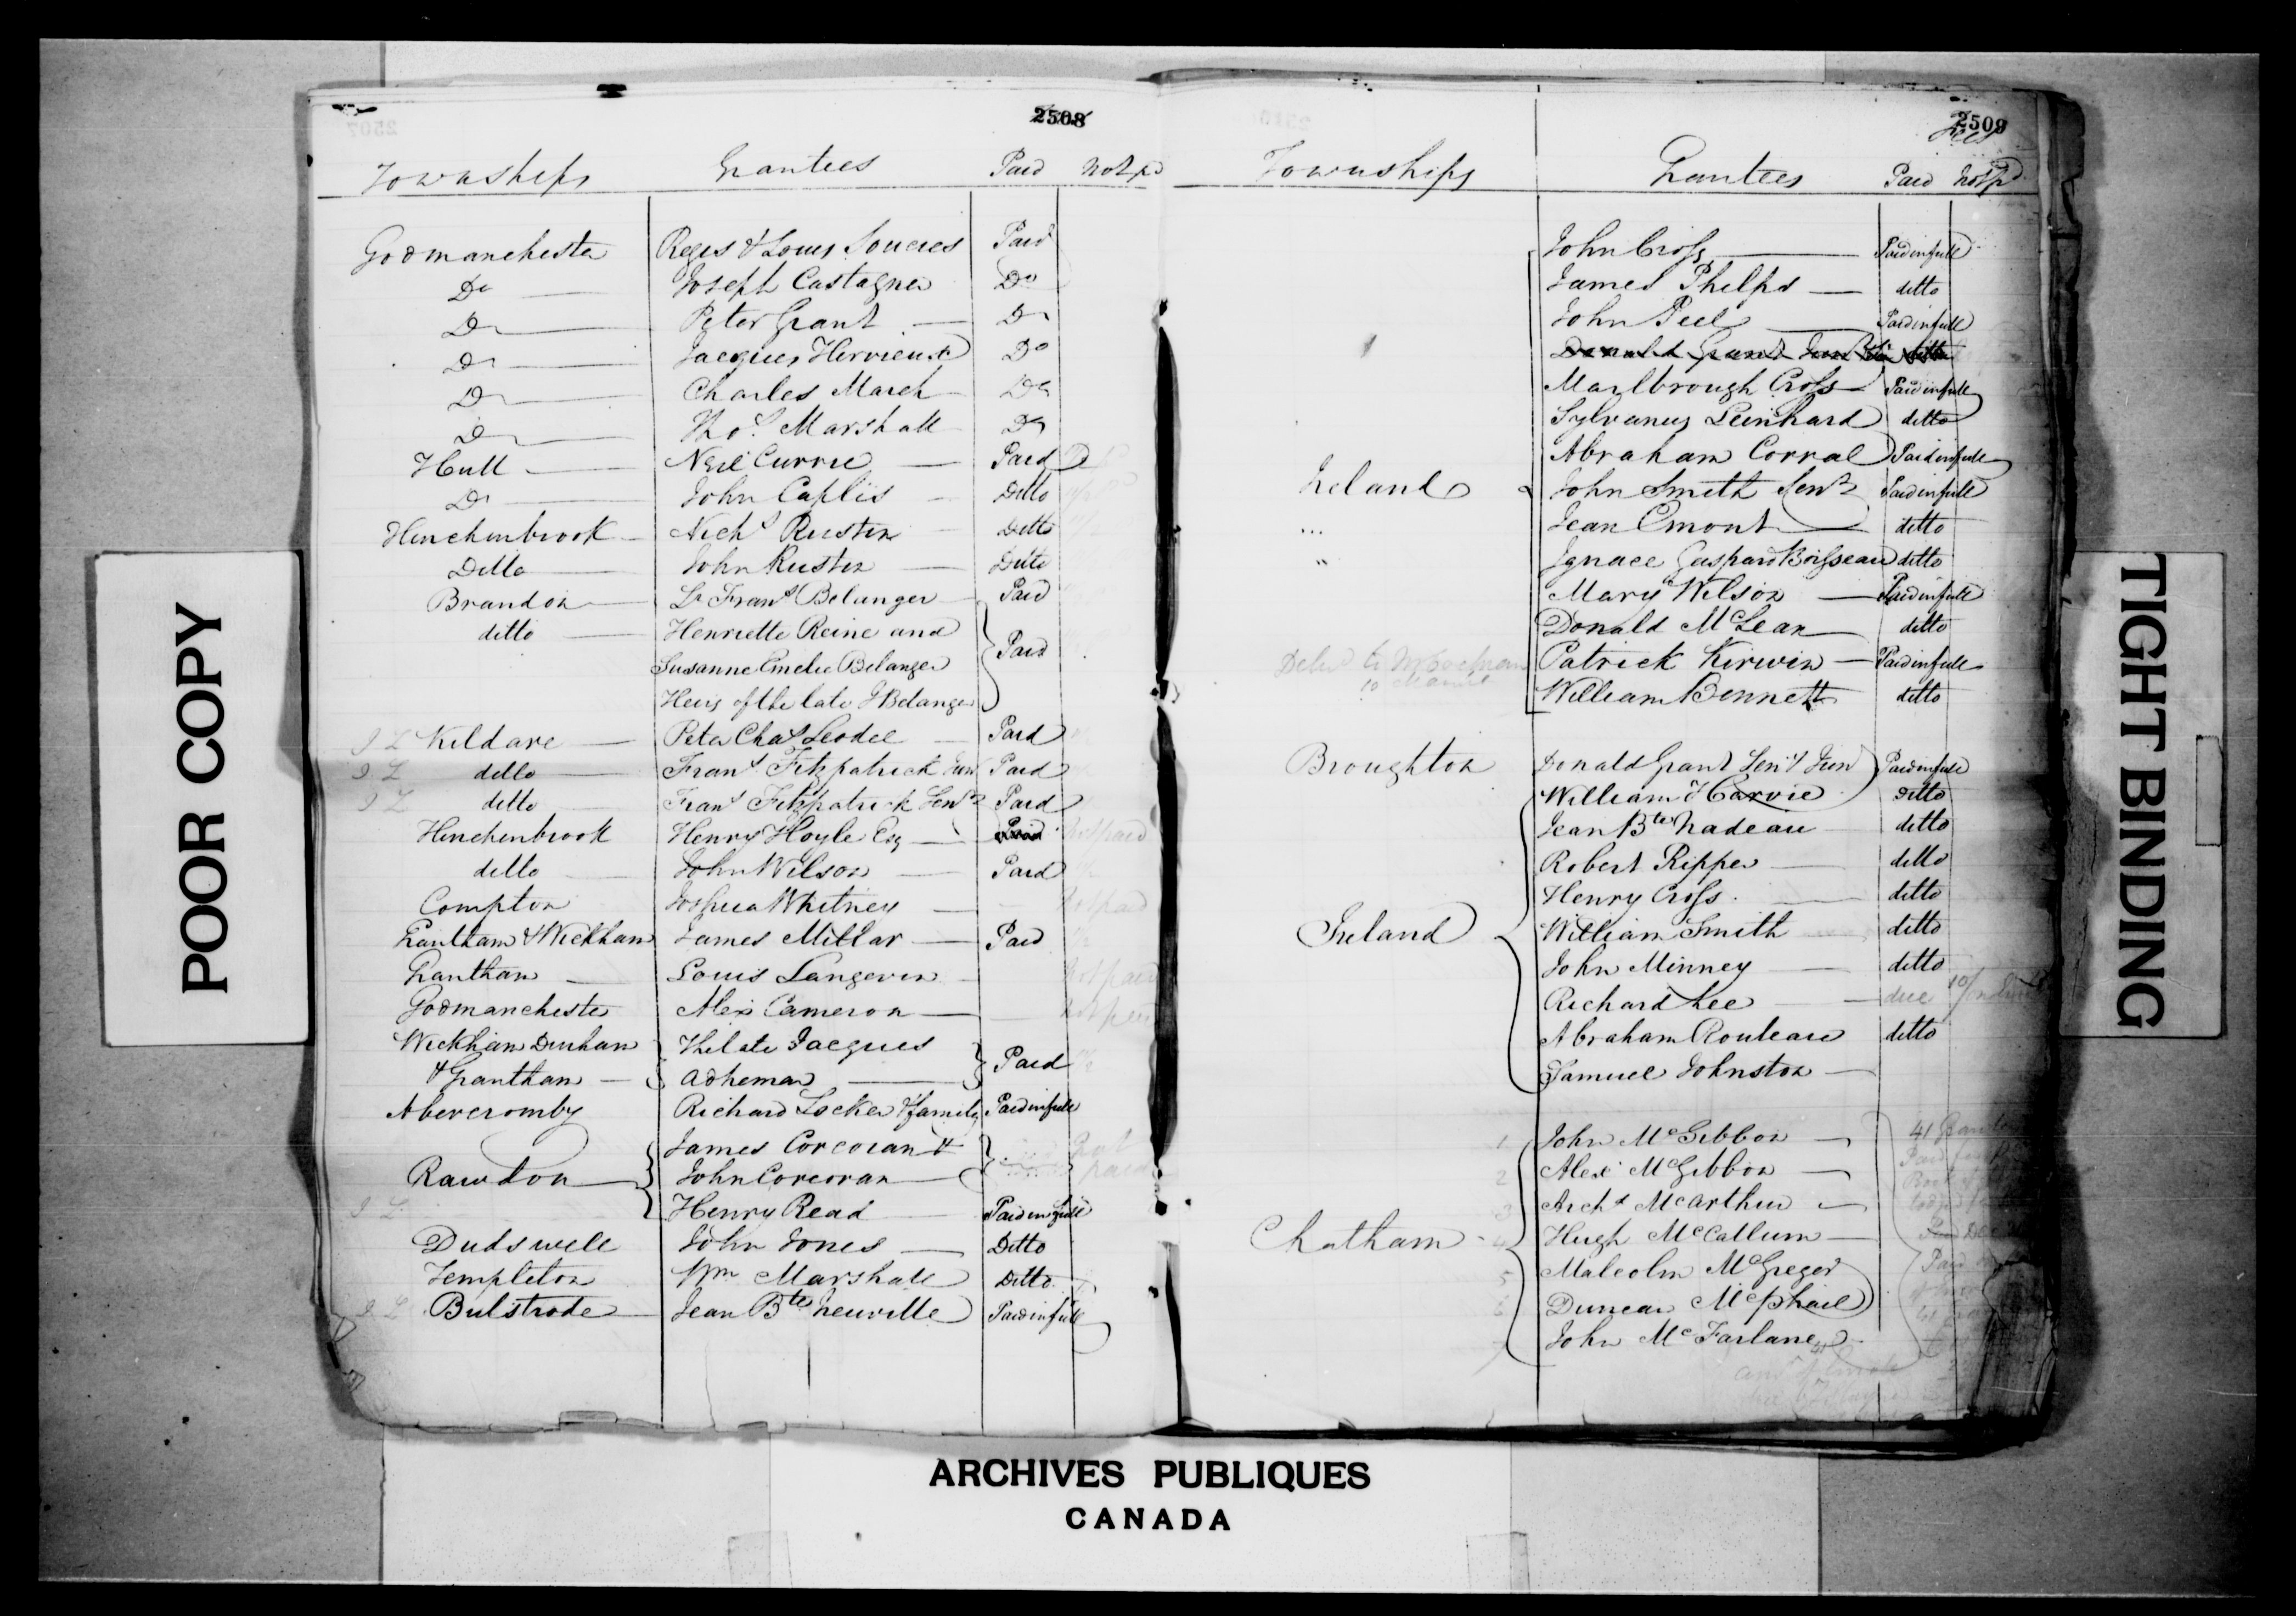 POOR COPY
2508
Townships Grantees Paid Not pd
Godmanchester Regis & Louis Soucies Paid
Do Joseph Castagner Do
Do Peter Grant Do
Do Jacques Hervieux Do
Do Charles March Do
Do Thos. Marshall Do
Hull Neil Currie Paid
Do John Caplis Ditto
Hinchinbrook Nichs Rustin Ditto
Ditto John Rustin Ditto
Brandon Ls Frans Belanger Paid
ditto Henriette Reine and
Susanne Emelie Belanger Paid
Heirs of the late J Belanger
J L Kildare Peter Chas Leodel Paid
J L ditto Frans Fitzpatrick Junr Paid
J L ditto Frans Fitzpatrick Senr Paid
Hinchenbrook Henry Hoyle Esq Paid Not paid
ditto John Wilson Paid
Compton Joshua Whitney Not paid
Grantham & Wickham James Millar Paid
Grantham Louis Langevin Not paid
Godmanchester Alexr Cameron Not paid
Wickham Durham The late Jacques
& Grantham Adhemar Paid
Abercromby Richard Locker & family Paid in full
James Corcoran & Not
Rawdon John Corcoran paid
J L Henry Read Paid in full
Dudswell John Jones Ditto
Templeton Wm Marshall Ditto
J L Bulstrode Jean Bte Neuville Paid in full
2509
Fees
Townships Grantees Paid Not pd
John Cross Paid in full
James Phelps ditto
John Peel Paid in full
Donald Grant Junr ditto
Marlbrough Cross Paid in full
Sylvanus Leinhard ditto
Abraham Corral Paid in full
Ireland John Smith Senr Paid in full
Jean Emont ditto
Ignace Gaspard Boisseau ditto
Mary Wilson Paid in full
Donald McLean ditto
Patrick Kirwin Paid in full
William Bennett ditto
Broughton Donald Grant Sen & Jun Paid in full
William Harvie ditto
Jean Bte Nadeau ditto
Robert Ripper ditto
Henry Cross ditto
Ireland William Smith ditto
John Minney ditto
Richard Lee due 10/
Abraham Rouleau ditto
Samuel Johnston
1 John McGibbon 41
2 Alexr McGibbon Paid
3 Archd McArthur
Chatham 4 Hugh McCallum
5 Malcolm McGregor Paid
6 Duncan McPhail
7 John McFarlane
TIGHT BINDING
ARCHIVES PUBLIQUES
CANADA